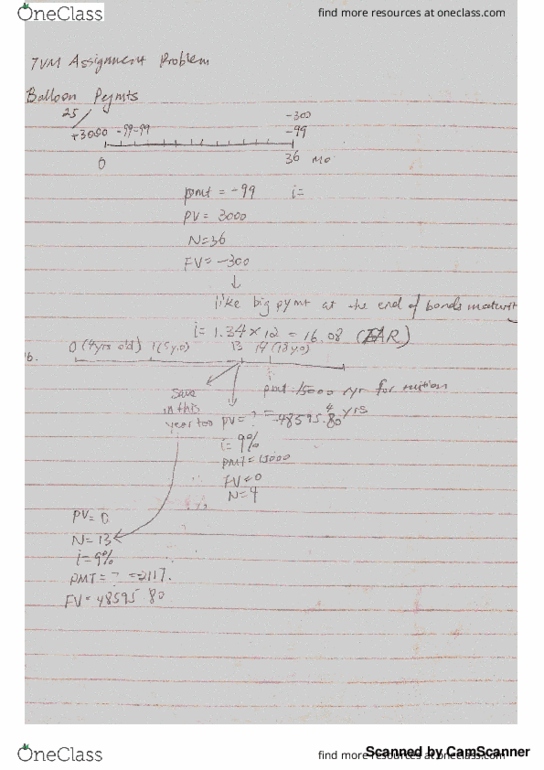 OneClass
find more resources at oneclass.com
TVM Assignment Problem
Balloon Pymts
25
+3000 -99-99
-300
-99
0
36 Mo
pmt = -99 i=
PV = 3000
N=36
FV = -300
↓
like big pymt at the end of bonds maturity
i= 1.34 × 12 = 16.08 (EAR)
0 (4yrs old) 1(5y.o) 13 14 (18 y.o)
6.
pmt 15000 /yr for tuition
4 yrs
Save in this year too
PV = ? = -48595.80
i= 9%
PMT = 15000
FV=0
N=4
PV= 0
N= 13
i= 9%
PMT= ? = -2117.
FV= 48595 80
OneClass
find more resources at oneclass.com
Scanned by CamScanner